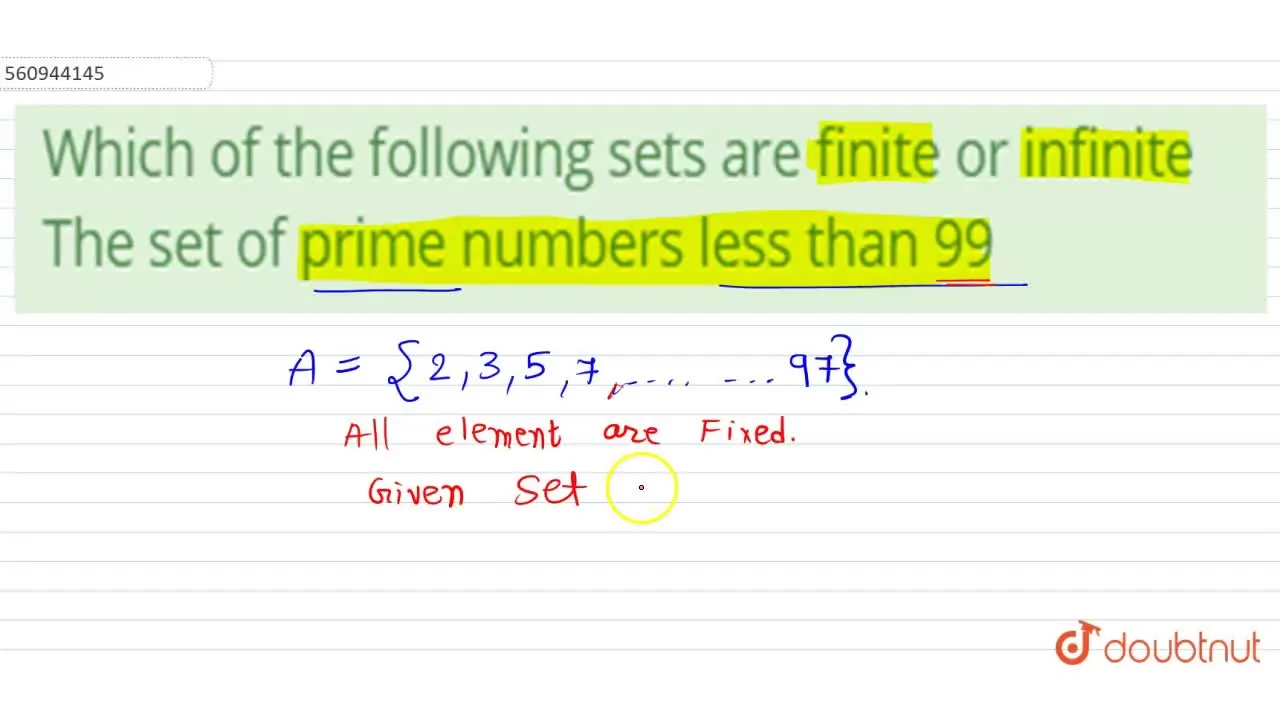 560944145
Which of the following sets are finite or infinite
The set of prime numbers less than 99
A = {2, 3, 5, 7, .... ... 97}.
All element are Fixed.
Given Set
doubtnut